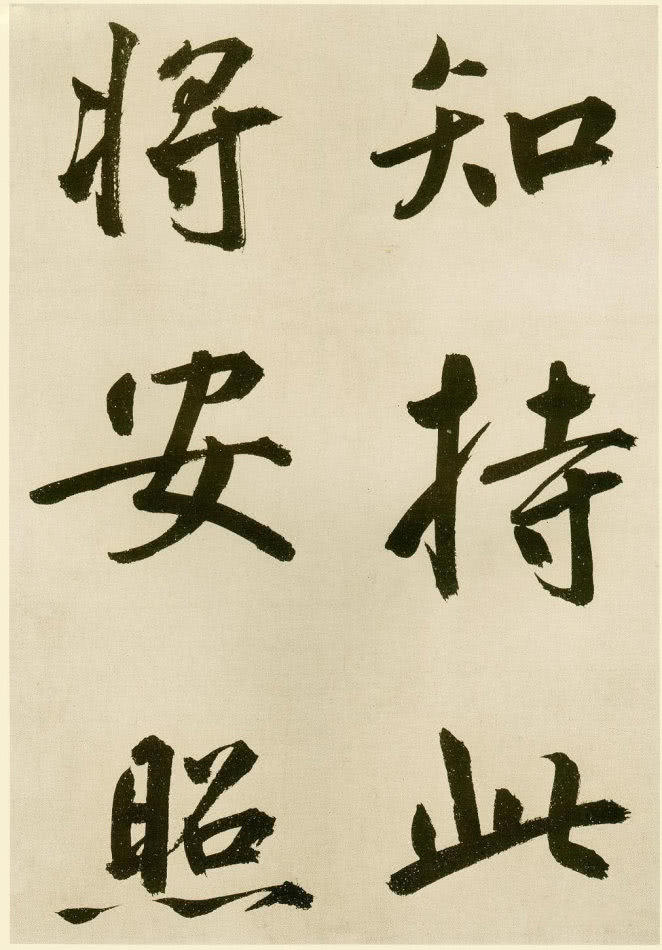 知持此
将安照